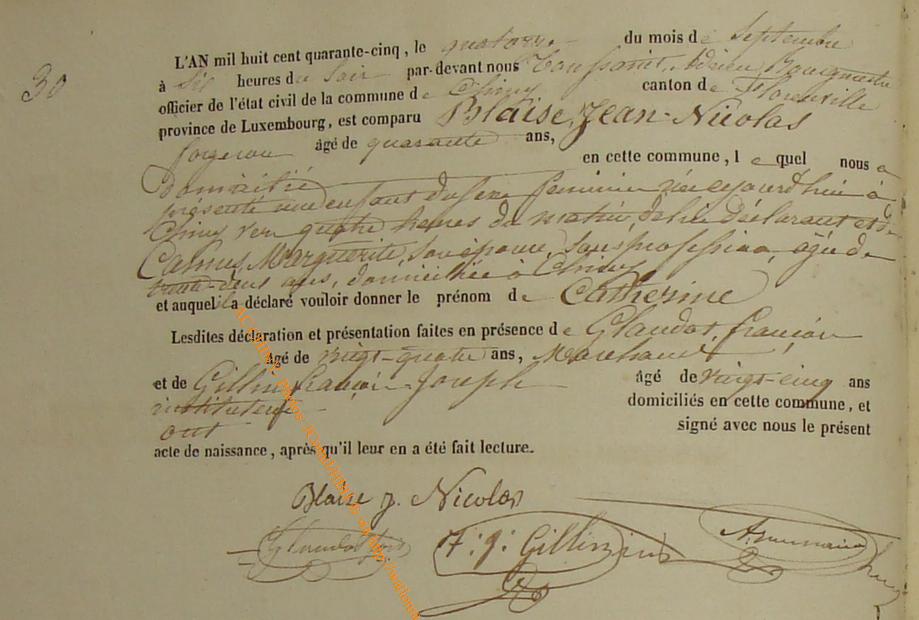 30
L'AN mil huit cent quarante-cinq, le quatorze du mois de Septembre
à six heures du soir par-devant nous Toussaint, Adrien
officier de l'état civil de la commune de Chiny canton de Florenville
province de Luxembourg, est comparu Blaise, Jean-Nicolas
forgeron âgé de quarante ans,
domicilié en cette commune, lequel nous a
présenté une enfant du sexe féminin née aujourd'hui à
Chiny vers quatre heures du matin, de lui déclarant et de
Marguerite, son épouse, sans profession, âgée de
trente-deux ans, domiciliée à Chiny
et auquel il a déclaré vouloir donner le prénom de Catherine
Lesdites déclaration et présentation faites en présence de Glaudot, françois
âgé de vingt-quatre ans, Marchand,
et de françois Joseph âgé de vingt-cinq ans
instituteur domiciliés en cette commune, et
ont signé avec nous le présent
acte de naissance, après qu'il leur en a été fait lecture.
Blaise j. Nicolas
Glaudot
F: j: